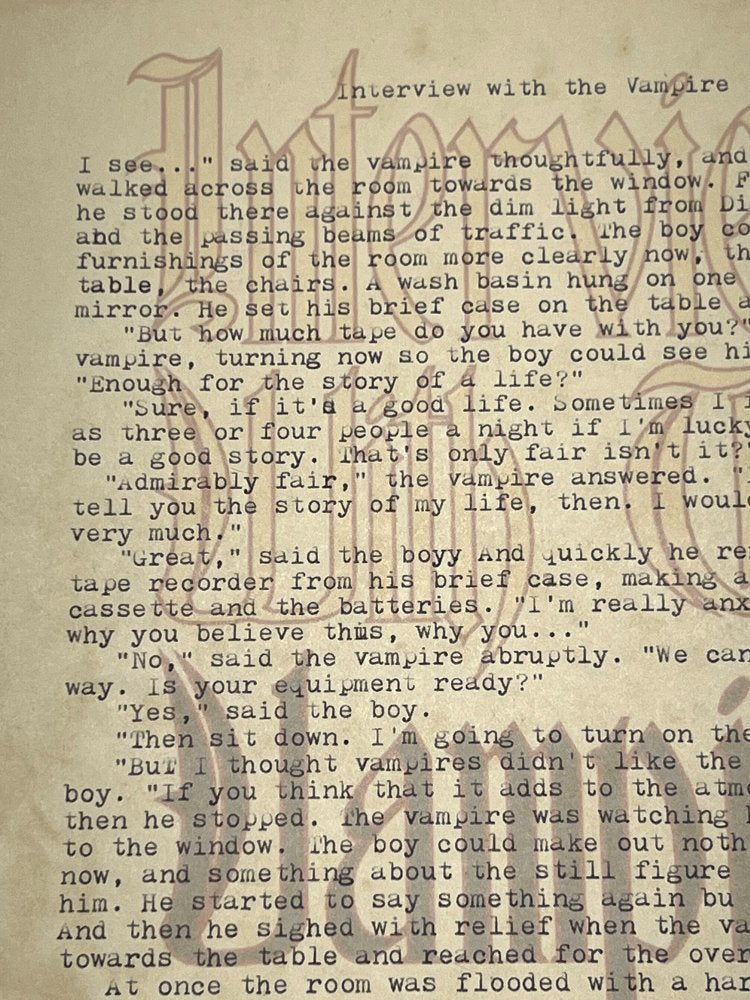 Interview with the Vampire
I see..." said the vampire thoughtfully, and
walked across the room towards the window. F
he stood there against the dim light from Di
and the passing beams of traffic. The boy co
furnishings of the room more clearly now, th
table, the chairs. A wash basin hung on one
mirror. He set his brief case on the table a
"But how much tape do you have with you?"
vampire, turning now so the boy could see hi
"Enough for the story of a life?"
"Sure, if it's a good life. Sometimes I i
as three or four people a night if I'm lucky
be a good story. That's only fair isn't it?"
"Admirably fair," the vampire answered. "I
tell you the story of my life, then. I would
very much."
"Great," said the boyy And quickly he re
tape recorder from his brief case, making a
cassette and the batteries. "I'm really anx
why you believe this, why you..."
"No," said the vampire abruptly. "We can
way. Is your equipment ready?"
"Yes," said the boy.
"Then sit down. I'm going to turn on the
"BuT I thought vampires didn't like the
boy. "If you think that it adds to the atmo
then he stopped. The vampire was watching h
to the window. The boy could make out noth
now, and something about the still figure
him. He started to say something again bu
And then he sighed with relief when the va
towards the table and reached for the over
At once the room was flooded with a har
Interview
With T
Vampi